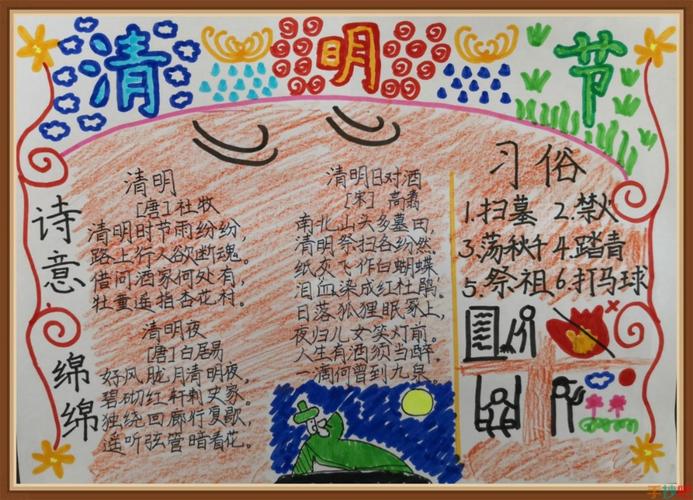 清明节
诗意
绵绵
清明
[唐]杜牧
清明时节雨纷纷,
路上行人欲断魂。
借问酒家何处有,
牡童遥指杏花村。
清明夜
[唐]白居易
好风胧月清明夜,
碧砌红轩刺史家。
独绕回廊行复歇,
遥听弦管暗看花。
清明日对酒
[宋] 高翥
南北山头多墓田,
清明祭扫各纷然。
纸灰飞作白蝴蝶
泪血染成红杜鹃。
日落狐狸眠冢上,
夜归儿女笑灯前。
人生有酒须当醉,
一滴何曾到九泉。
习俗
1.扫墓 2.禁火
3.荡秋千 4.踏青
5.祭祖 6.打马球